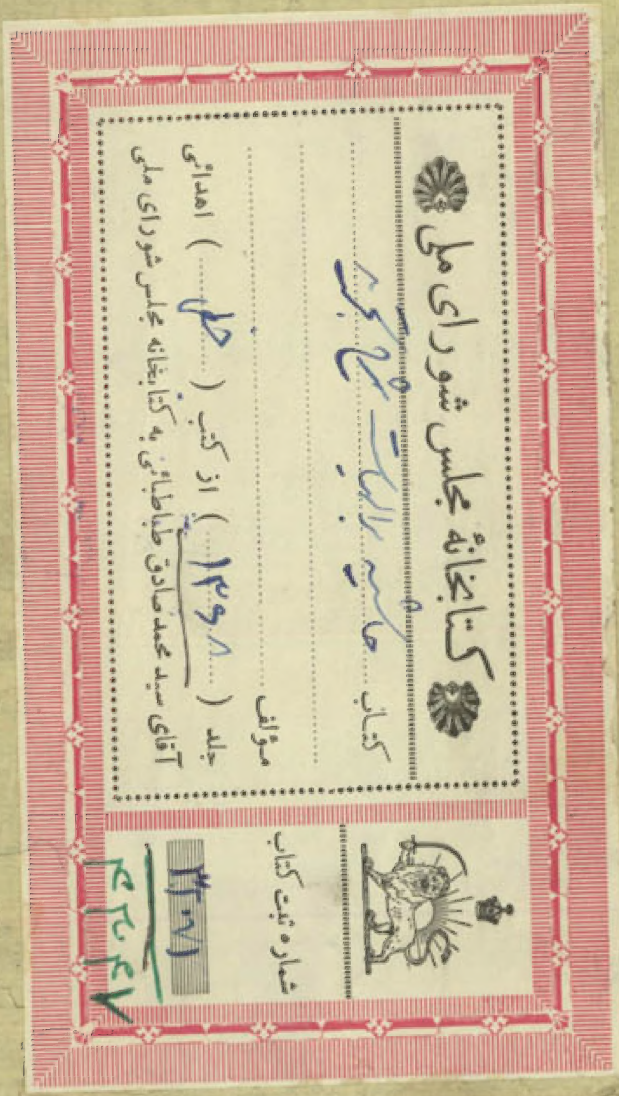 کتابخانهٔ مجلس شورای ملی
کتاب حاشیه بر الهیات شرح تجرید
مؤلف
جلد (۱۳۶۸) از کتب (خطی) اهدائی
آقای سید محمد صادق طباطبائی به کتابخانه مجلس شورای ملی
شماره ثبت کتاب
۴۳۰۴۷